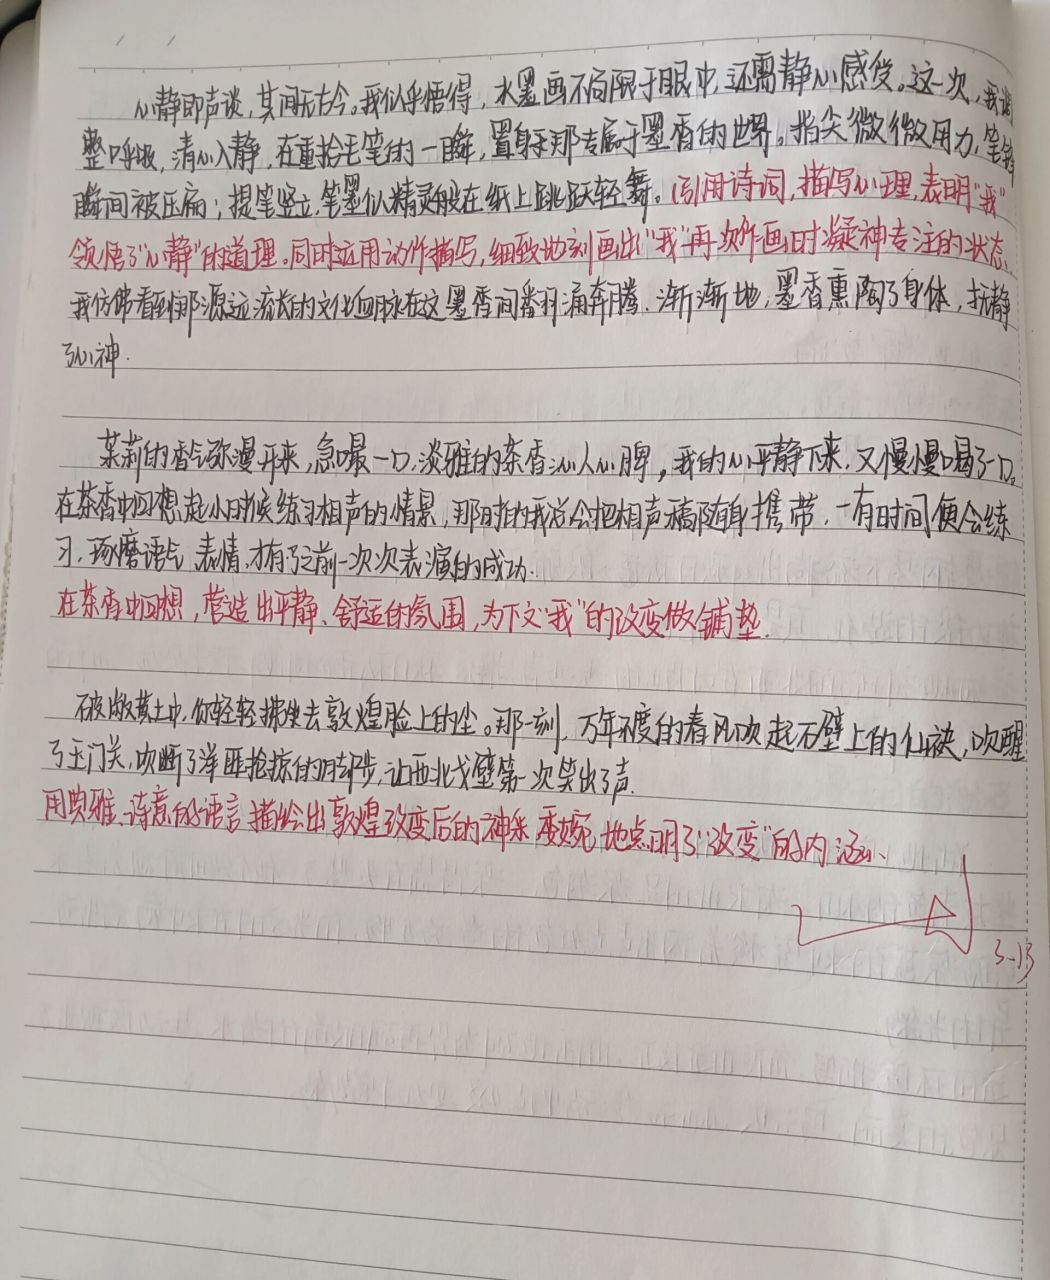 心静即声淡，其间无古今。我似乎悟得，水墨画不局限于眼中，还需静心感受。这一次，我调
整呼吸，清心入静，在重拾毛笔的一瞬，置身于那专属于墨香的世界。指尖微微用力，笔锋
瞬间被压扁；提笔竖立，笔墨似精灵般在纸上跳跃轻舞。(引用诗词，描写心理，表明"我"
领悟了"心静"的道理。同时运用动作描写，细致地刻画出"我"再次作画时凝神专注的状态。
我仿佛看到那源远流长的文化血脉在这墨香间翻涌奔腾．渐渐地，墨香熏陶了身体，抚静
了心神．
茉莉的香气弥漫开来，急嘬一口，淡雅的茶香沁人心脾，我的心平静下来．又慢慢喝了一口。
在茶香中回想起小时候练习相声的情景，那时的我总会把相声稿随身携带．一有时间便会练
习，琢磨语气 表情，才有了之前一次次表演的成功．
在茶香中回想，营造出平静、舒适的氛围，为下文"我"的改变做铺垫．
破败黄土中，你轻轻拂去敦煌脸上的尘。那一刻，万年不度的春风吹起石壁上的仙袂，吹醒
了玉门关，吹断了洋匪抢掠的脚步，让西北戈壁第一次笑出了声．
用典雅、诗意的语言描绘出敦煌改变后的神采 委婉地点明了"改变"的内涵、
3-13